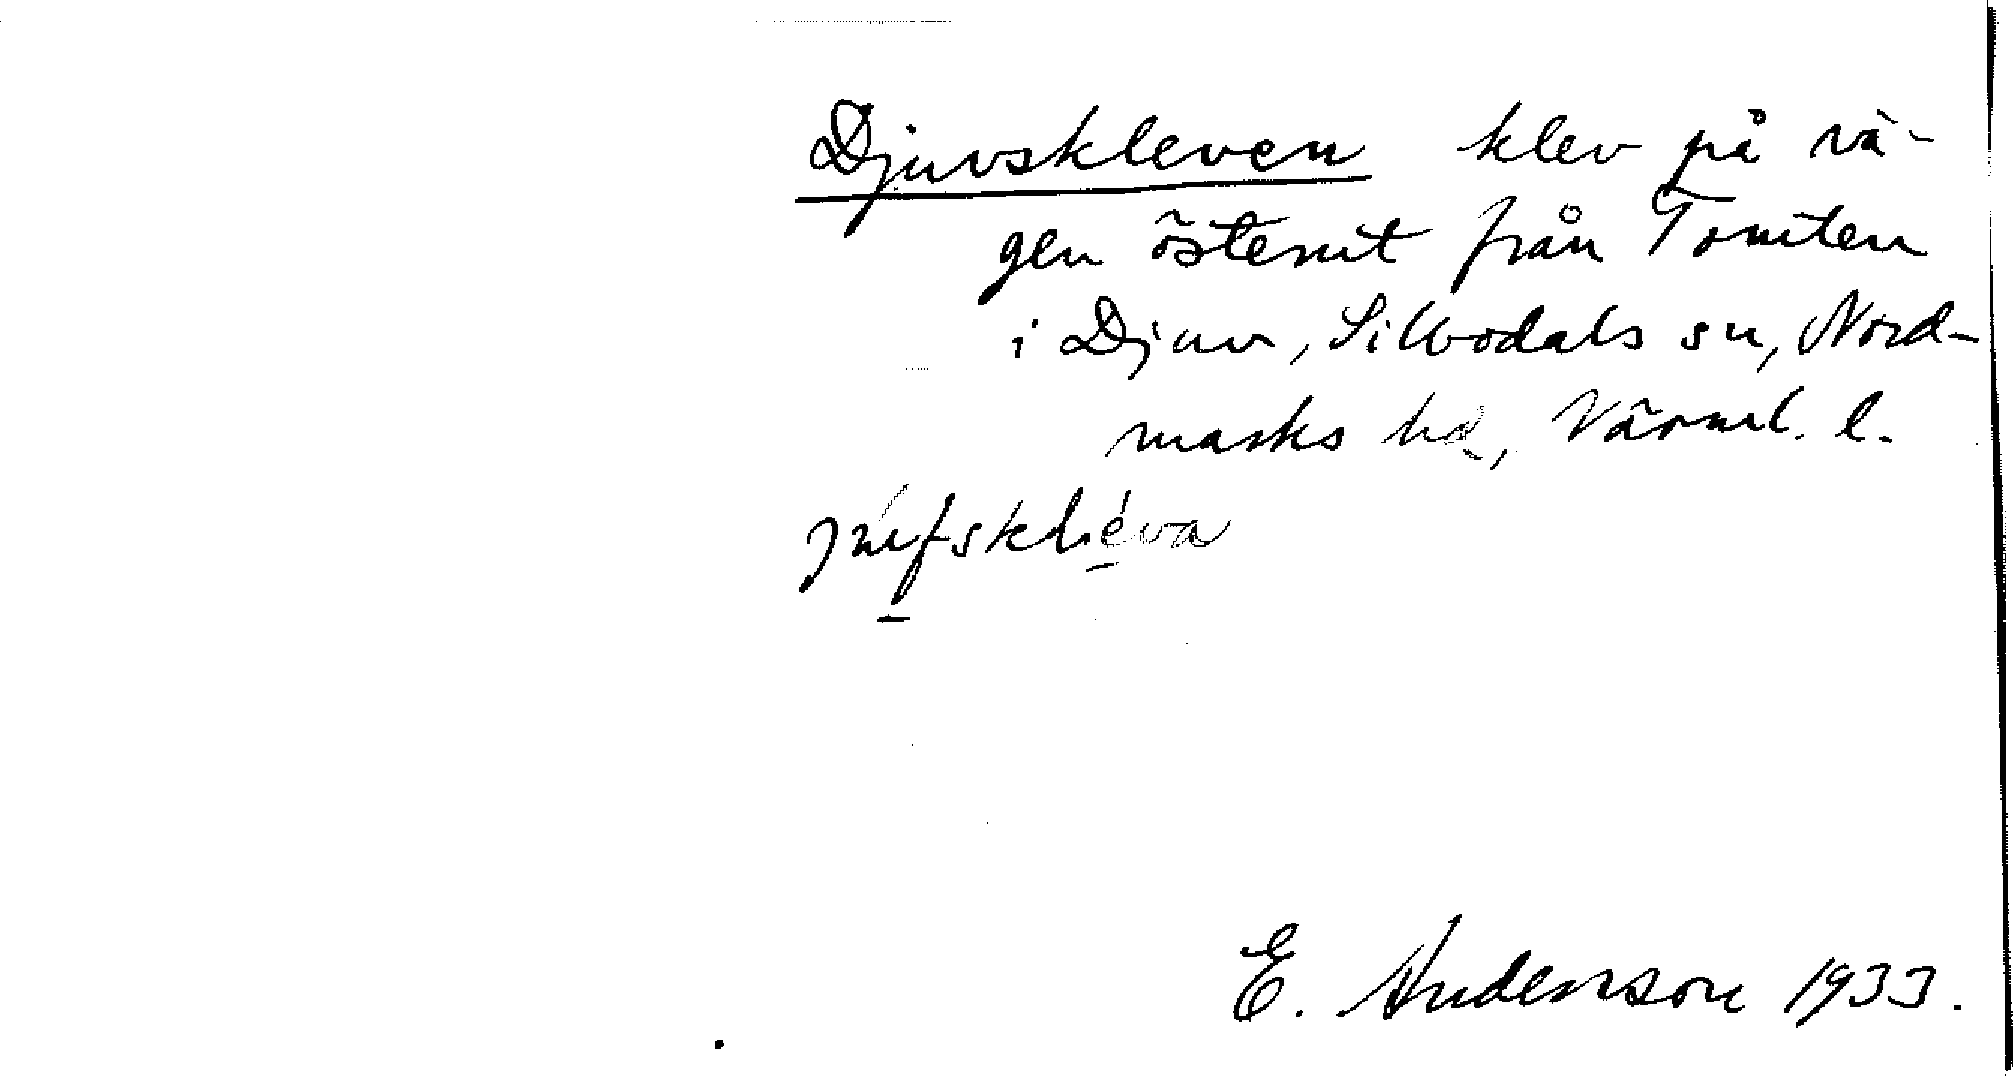 Djuvskleven klev på vä-
gen österut från Tomten
i Djuv, Silbodals sn, Nord-
marks hd, Värml. l.
júfskliéva
E. Anderson 1933.